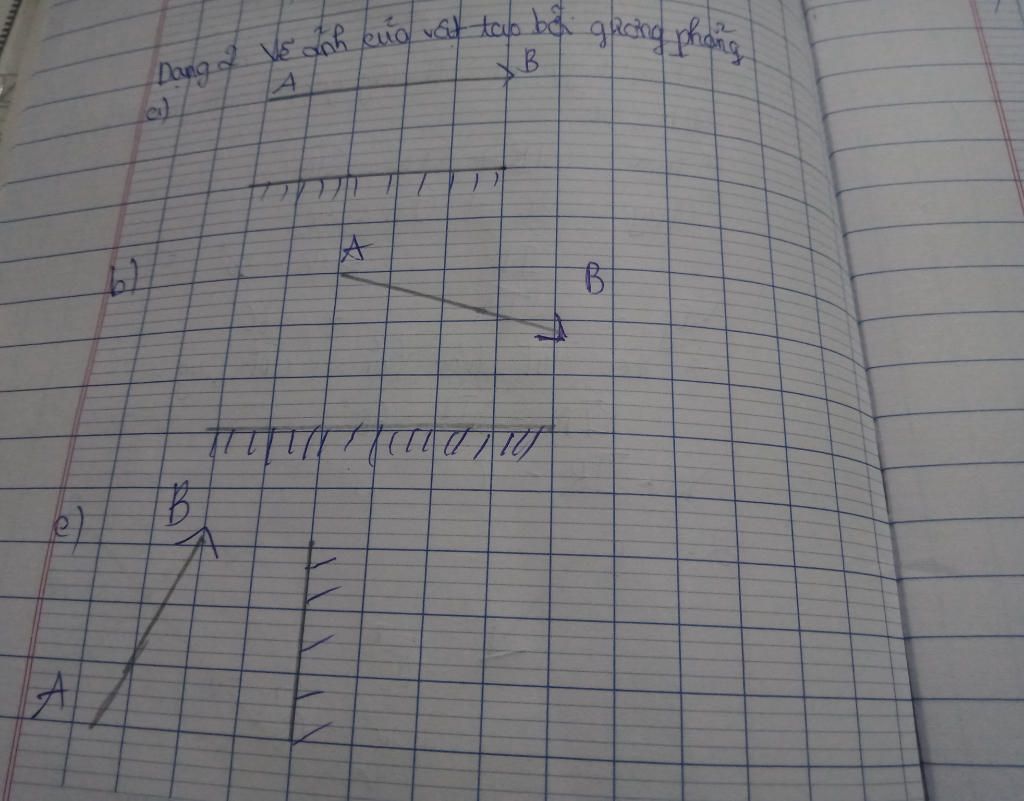 Dạng 2 Vẽ ảnh của vật tạo bởi gương phẳng
A B
a)
b) A B
c) B
A